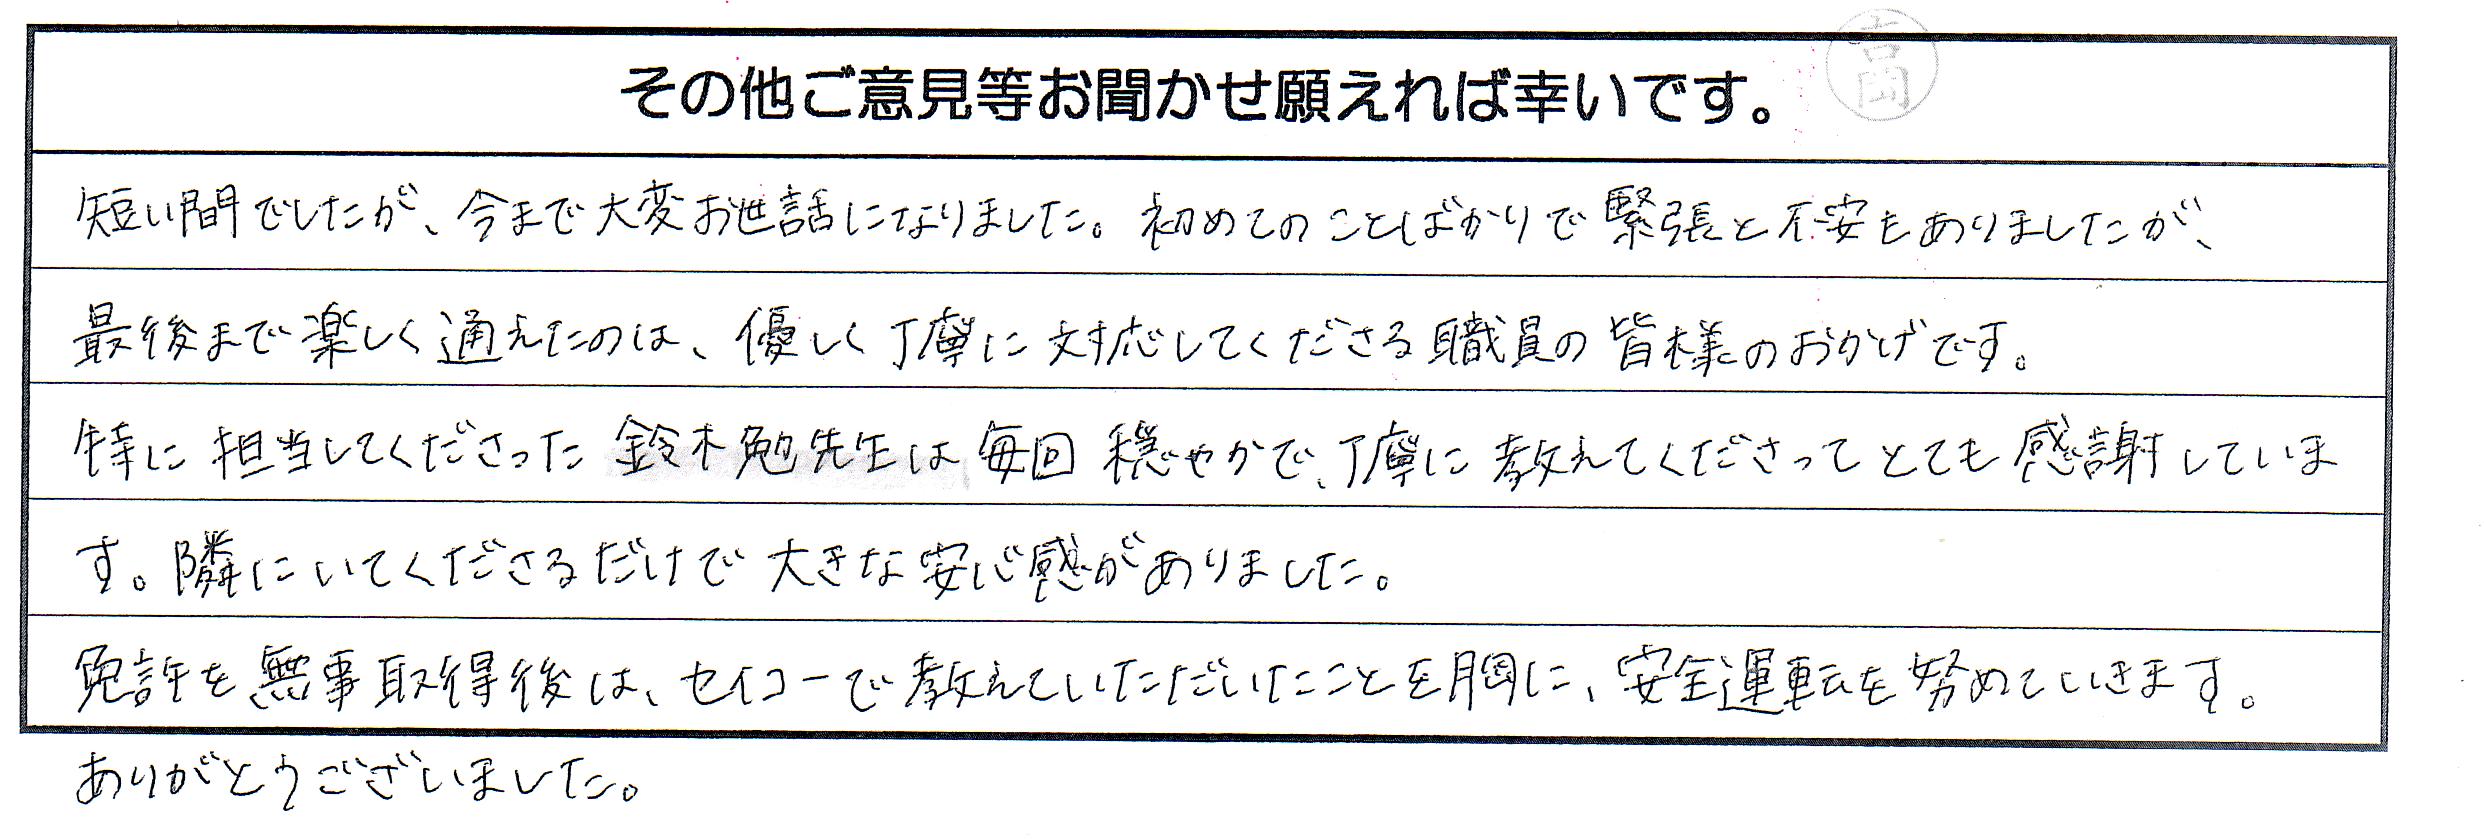 その他ご意見等お聞かせ願えれば幸いです。
吉岡
短い間でしたが、今まで大変お世話になりました。初めてのことばかりで緊張と不安もありましたが、
最後まで楽しく通えたのは、優しく丁寧に対応してくださる職員の皆様のおかげです。
特に担当してくださった鈴木勉先生は毎回穏やかで、丁寧に教えてくださってとても感謝していま
す。隣にいてくださるだけで大きな安心感がありました。
免許を無事取得後は、セイコーで教えていただいたことを胸に、安全運転を努めていきます。
ありがとうございました。